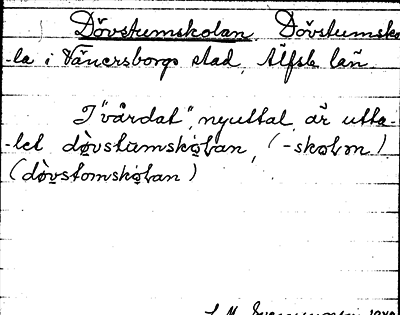 Dövstumskolan, Dövstumsko-
-la i Vänersborgs stad, Älfsb. län
I "vårdat", nyuttal, är utta-
-let dövstumskolan, (-skoln)
(dövstomskolan)